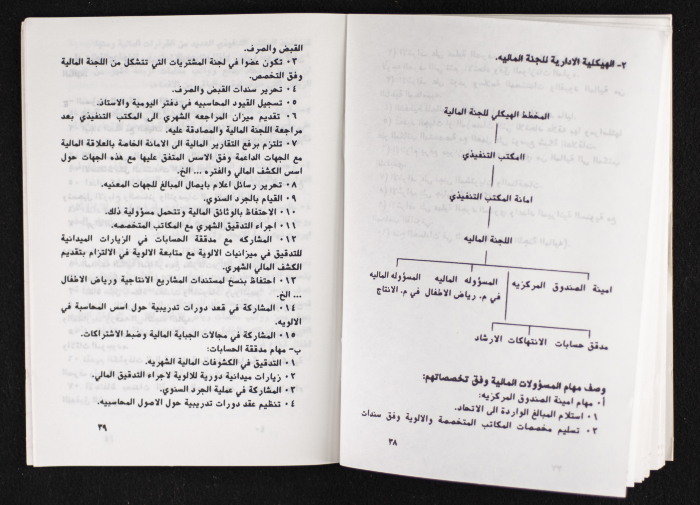 ٢- الهيكلية الادارية للجنة الماليه.
المخطط الهيكلي للجنة المالية
االمكتب التنفيذي
امانة المكتب التنفيذي
اللجنة الماليه
امينة الصندوق المركزيه
المسؤوله الماليه
المسؤوله الماليه
في م. رياض الاطفال
في م. الانتاج
مدقق حسابات
الانتهاكات
الارشاد
وصف مهام المسؤولات المالية وفق تخصصاتهم:
أ- مهام امينة الصندوق المركزيه:
٠١ استلام المبالغ الواردة الى الاتحاد.
٠٢ تسليم مخصصات المكاتب المتخصصة والالوية وفق سندات
٣٨
القبض والصرف.
٠٣ تكون عضوا في لجنة المشتريات التي تتشكل من اللجنة المالية
وفق التخصص.
٠٤ تحرير سندات القبض والصرف.
٠٥ تسجيل القيود المحاسبيه في دفتر اليومية والاستاذ.
٠٦ تقديم ميزان المراجعه الشهري الى المكتب التنفيذي بعد
مراجعة اللجنة المالية والمصادقة عليه.
٠٧ تلتزم برفع التقارير المالية الى الامانة الخاصة بالعلاقة المالية
مع الجهات الداعمة وفق الاسس المتفق عليها مع هذه الجهات حول
اسس الكشف المالي والفتره ... الخ.
٠٨ تحرير رسائل اعلام بايصال المبالغ للجهات المعنيه.
٠٩ القيام بالجرد السنوي.
٠١٠ الاحتفاظ بالوثائق المالية وتتحمل مسؤولية ذلك.
٠١١ اجراء التدقيق الشهري مع المكاتب المتخصصه.
٠١٢ المشاركه مع مدققة الحسابات في الزيارات الميدانية
للتدقيق في ميزانيات الالوية مع متابعة الالوية في الالتزام بتقديم
الكشف المالي الشهري.
٠١٣ احتفاظ بنسخ لمستندات المشاريع الانتاجية ورياض الاطفال
... الخ.
٠١٤ المشاركة في قعد دورات تدريبية حول اسس المحاسبة في
الالويه.
٠١٥ المشاركة في مجالات الجباية المالية وضبط الاشتراكات.
ب- مهام مدققة الحسابات:
٠١ التدقيق في الكشوفات المالية الشهريه.
٠٢ زيارات ميدانية دورية للالوية لاجراء التدقيق المالي.
٠٣ المشاركة في عملية الجرد السنوي.
٠٤ تنظيم عقد دورات تدريبية حول الاصول المحاسبيه.
٣٩